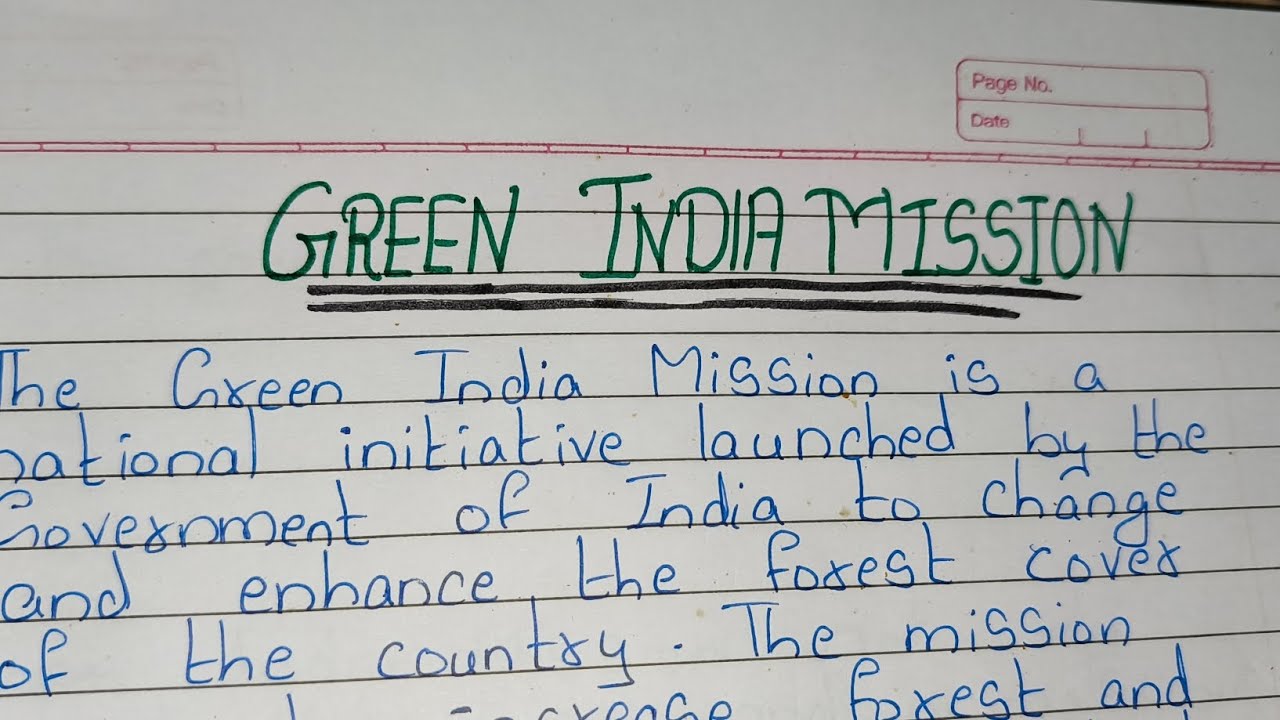 Page No.
Date
GREEN INDIA MISSION
The Green India Mission is a
national initiative launched by the
Government of India to change
and enhance the forest cover
of the country. The mission
forest and